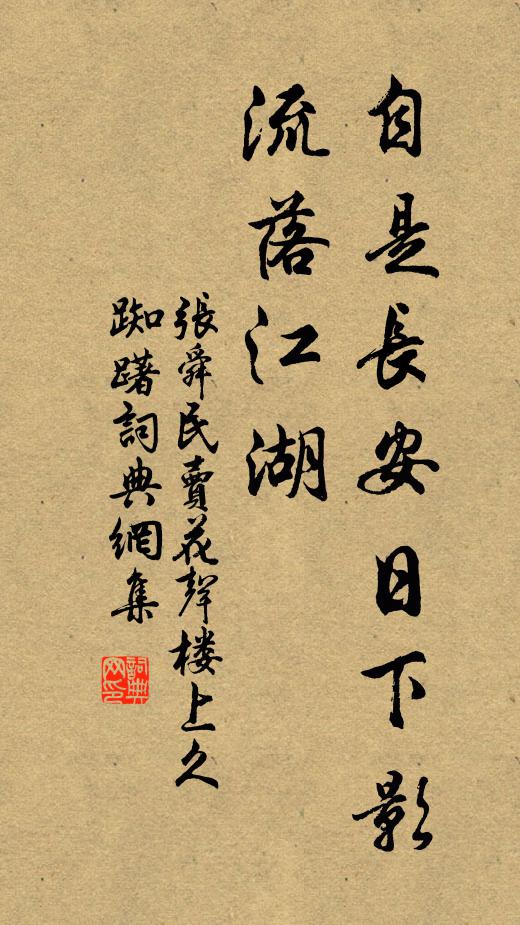 自是長安日下影
流落江湖
張舜民賣花聲樓上久
踟躇詞典網集
詞典網印